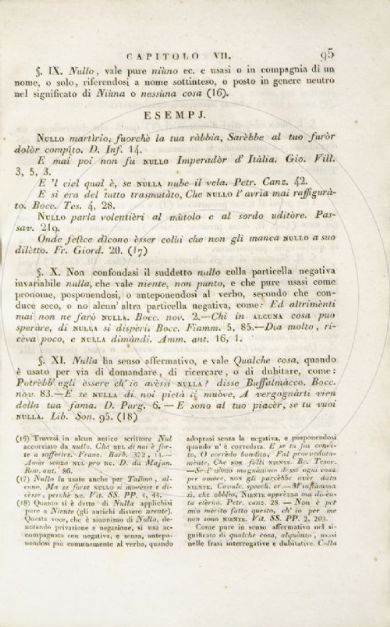 CAPITOLO VII. 95
§. IX. Nullo, vale pure niùno ec. e usasi o in compagnia di un
nome, o solo, riferendosi a nome sottinteso, o posto in genere neutro
nel significato di Niùna o nessùna cosa (16).
ESEMPJ.
NULLO martìrio, fuorchè la tua ràbbia, Sarèbbe al tuo furòr
dolòr compìto. D. Inf. 14.
E mai poi non fu NULLO Imperadòr d' Itàlia. Gio. Vill.
3, 5, 3.
E 'l ciel qual è, se NULLA nube il vela. Petr. Canz. 42.
E sì era del tutto trasmutàto, Che NULLO l' avrìa mai raffigurà-
to. Bocc. Tes. 4. 28.
NULLO parla volentièri al mùtolo e al sordo uditòre. Pas-
sav. 219.
Onde fesice dìcono èsser colùi che non gli manca NULLO a suo
dilètto. Fr. Giord. 20. (17)
§. X. Non confondasi il suddetto nullo colla particella negativa
invariabile nulla, che vale niente, non punto, e che pure usasi come
pronome, posponendosi, o anteponendosi al verbo, secondo che con-
duce seco, o no alcun' altra particella negativa, come: Ed altrimènti
mai non ne farò NULLA. Bocc. nov. 2.—Chi in ALCUNA cosa può
speràre, di NULLA si dispèri. Bocc. Fiamm. 5, 85.—Dia molto, ri-
cèva poco, e NULLA dimàndi. Amm. ant. 16, 1.
§. XI. Nulla ha senso affermativo, e vale Qualche cosa, quando
è usato per via di domandare, di ricercare, o di dubitare, come:
Potrèbb' egli èssere ch' io avèssi NULLA? disse Buffalmàcco. Bocc.
nov. 83.—E se NULLA di noi pietà ti muòve, A vergognàrti vien
della tua fama. D. Purg. 6.—E sono al tuo piacèr, se tu vuoi
NULLA. Lib. Son. 95. (18)
(16) Trovasi in alcun antico scrittore Nul
accorciato da nullo. Che NUL di noi è for-
te a soffèrire. Franc. Barb. 372, 14.—
Amòr senza NUL pro ec. D. da Majan.
Rom. ant. 86.
(17) Nullo fu usato anche per Taluno, al-
cuno, Ma se forse NULLO si movèsse e di-
cèsse, perchè ec. Vit. SS. PP. 1, 43.
(18) Quanto si è detto di Nulla applichisi
pure a Niente (gli antichi dissero neente).
Questa voce, che è sinonimo di Nulla, de-
notando privazione e negazione, si usa ac-
compagnata con negativa, e senza, antepo-
nendosi più comunemente al verbo, quando
adoprasi senza la negativa, e posponendosi
quando n' è corredata.
NIENTE.
Come pure in senso affermativo nel si-
gnificato di qualche cosa, alquànto, usasi
nelle frasi interrogative e dubitative. Colla